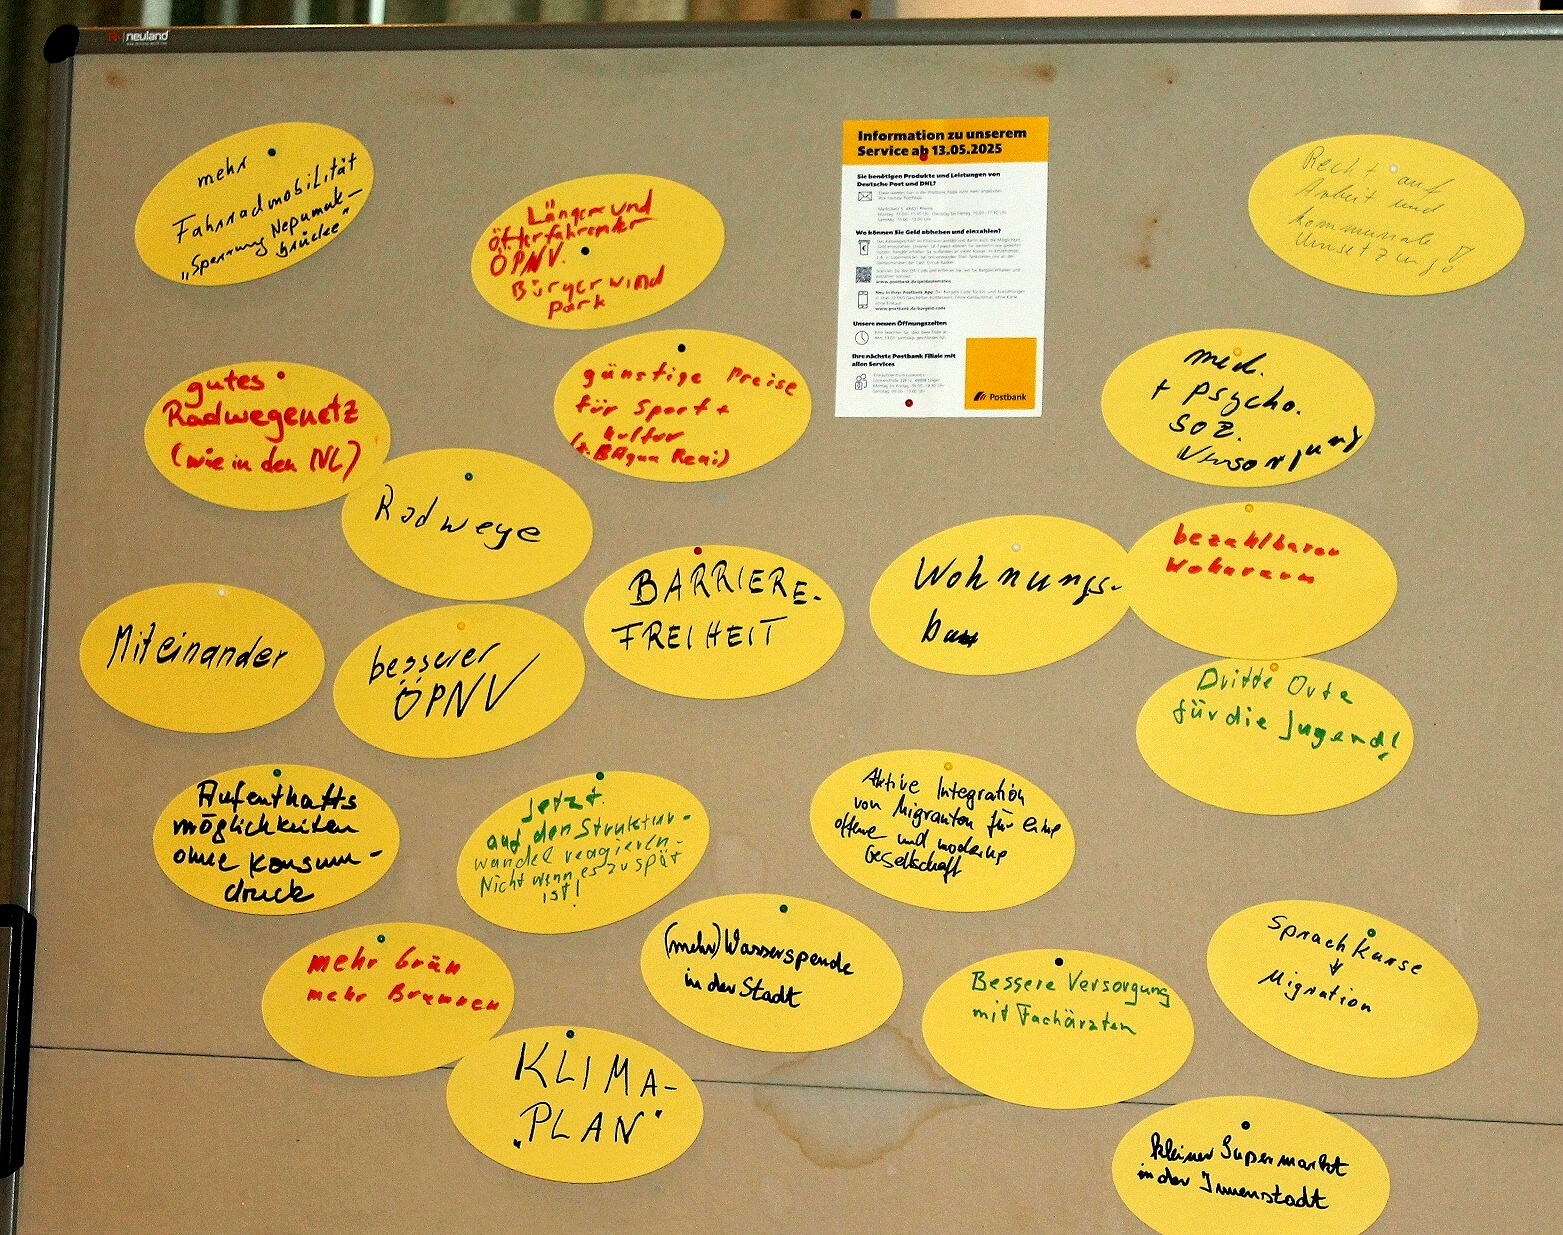 neuland
mehr
Fahrradmobilität
„Sperrung Nepumuk-
brücke"
Länger und
öfterfahrender
ÖPNV.
Bürgerwind
park
Information zu unserem
Service ab 13.05.2025
Sie benötigen Produkte und Leistungen von
Deutsche Post und DHL?
Wo können Sie Geld abheben und einzahlen?
www.postbank.de/geldautomaten
Neu in Ihrer Postbank App:
www.postbank.de/bargeld-code
Unsere neuen Öffnungszeiten
Ihre nächste Postbank Filiale mit
allen Services
Postbank
Recht auf
Arbeit und
kommunale
Umsetzung!
gutes
Radwegenetz
(wie in den NL)
günstige Preise
für Sport +
Kultur
med.
+ psycho.
soz.
Versorgung
Radwege
BARRIERE-
FREIHEIT
Wohnungs-
bau
bezahlbaren
Wohnraum
Miteinander
besserer
ÖPNV
Dritte Orte
für die Jugend!
Aufenthalts
möglichkeiten
ohne Konsum-
druck
Jetzt
auf den Struktur-
wandel reagieren.
Nicht wenn es zu spät
ist!
Aktive Integration
von Migranten für eine
offene und moderne
Gesellschaft
mehr Grün
mehr Brunnen
(mehr) Wasserspende
in der Stadt
Bessere Versorgung
mit Fachärzten
Sprach Kurse
↓
Migration
KLIMA-
„PLAN"
kleiner Supermarkt
in der Innenstadt